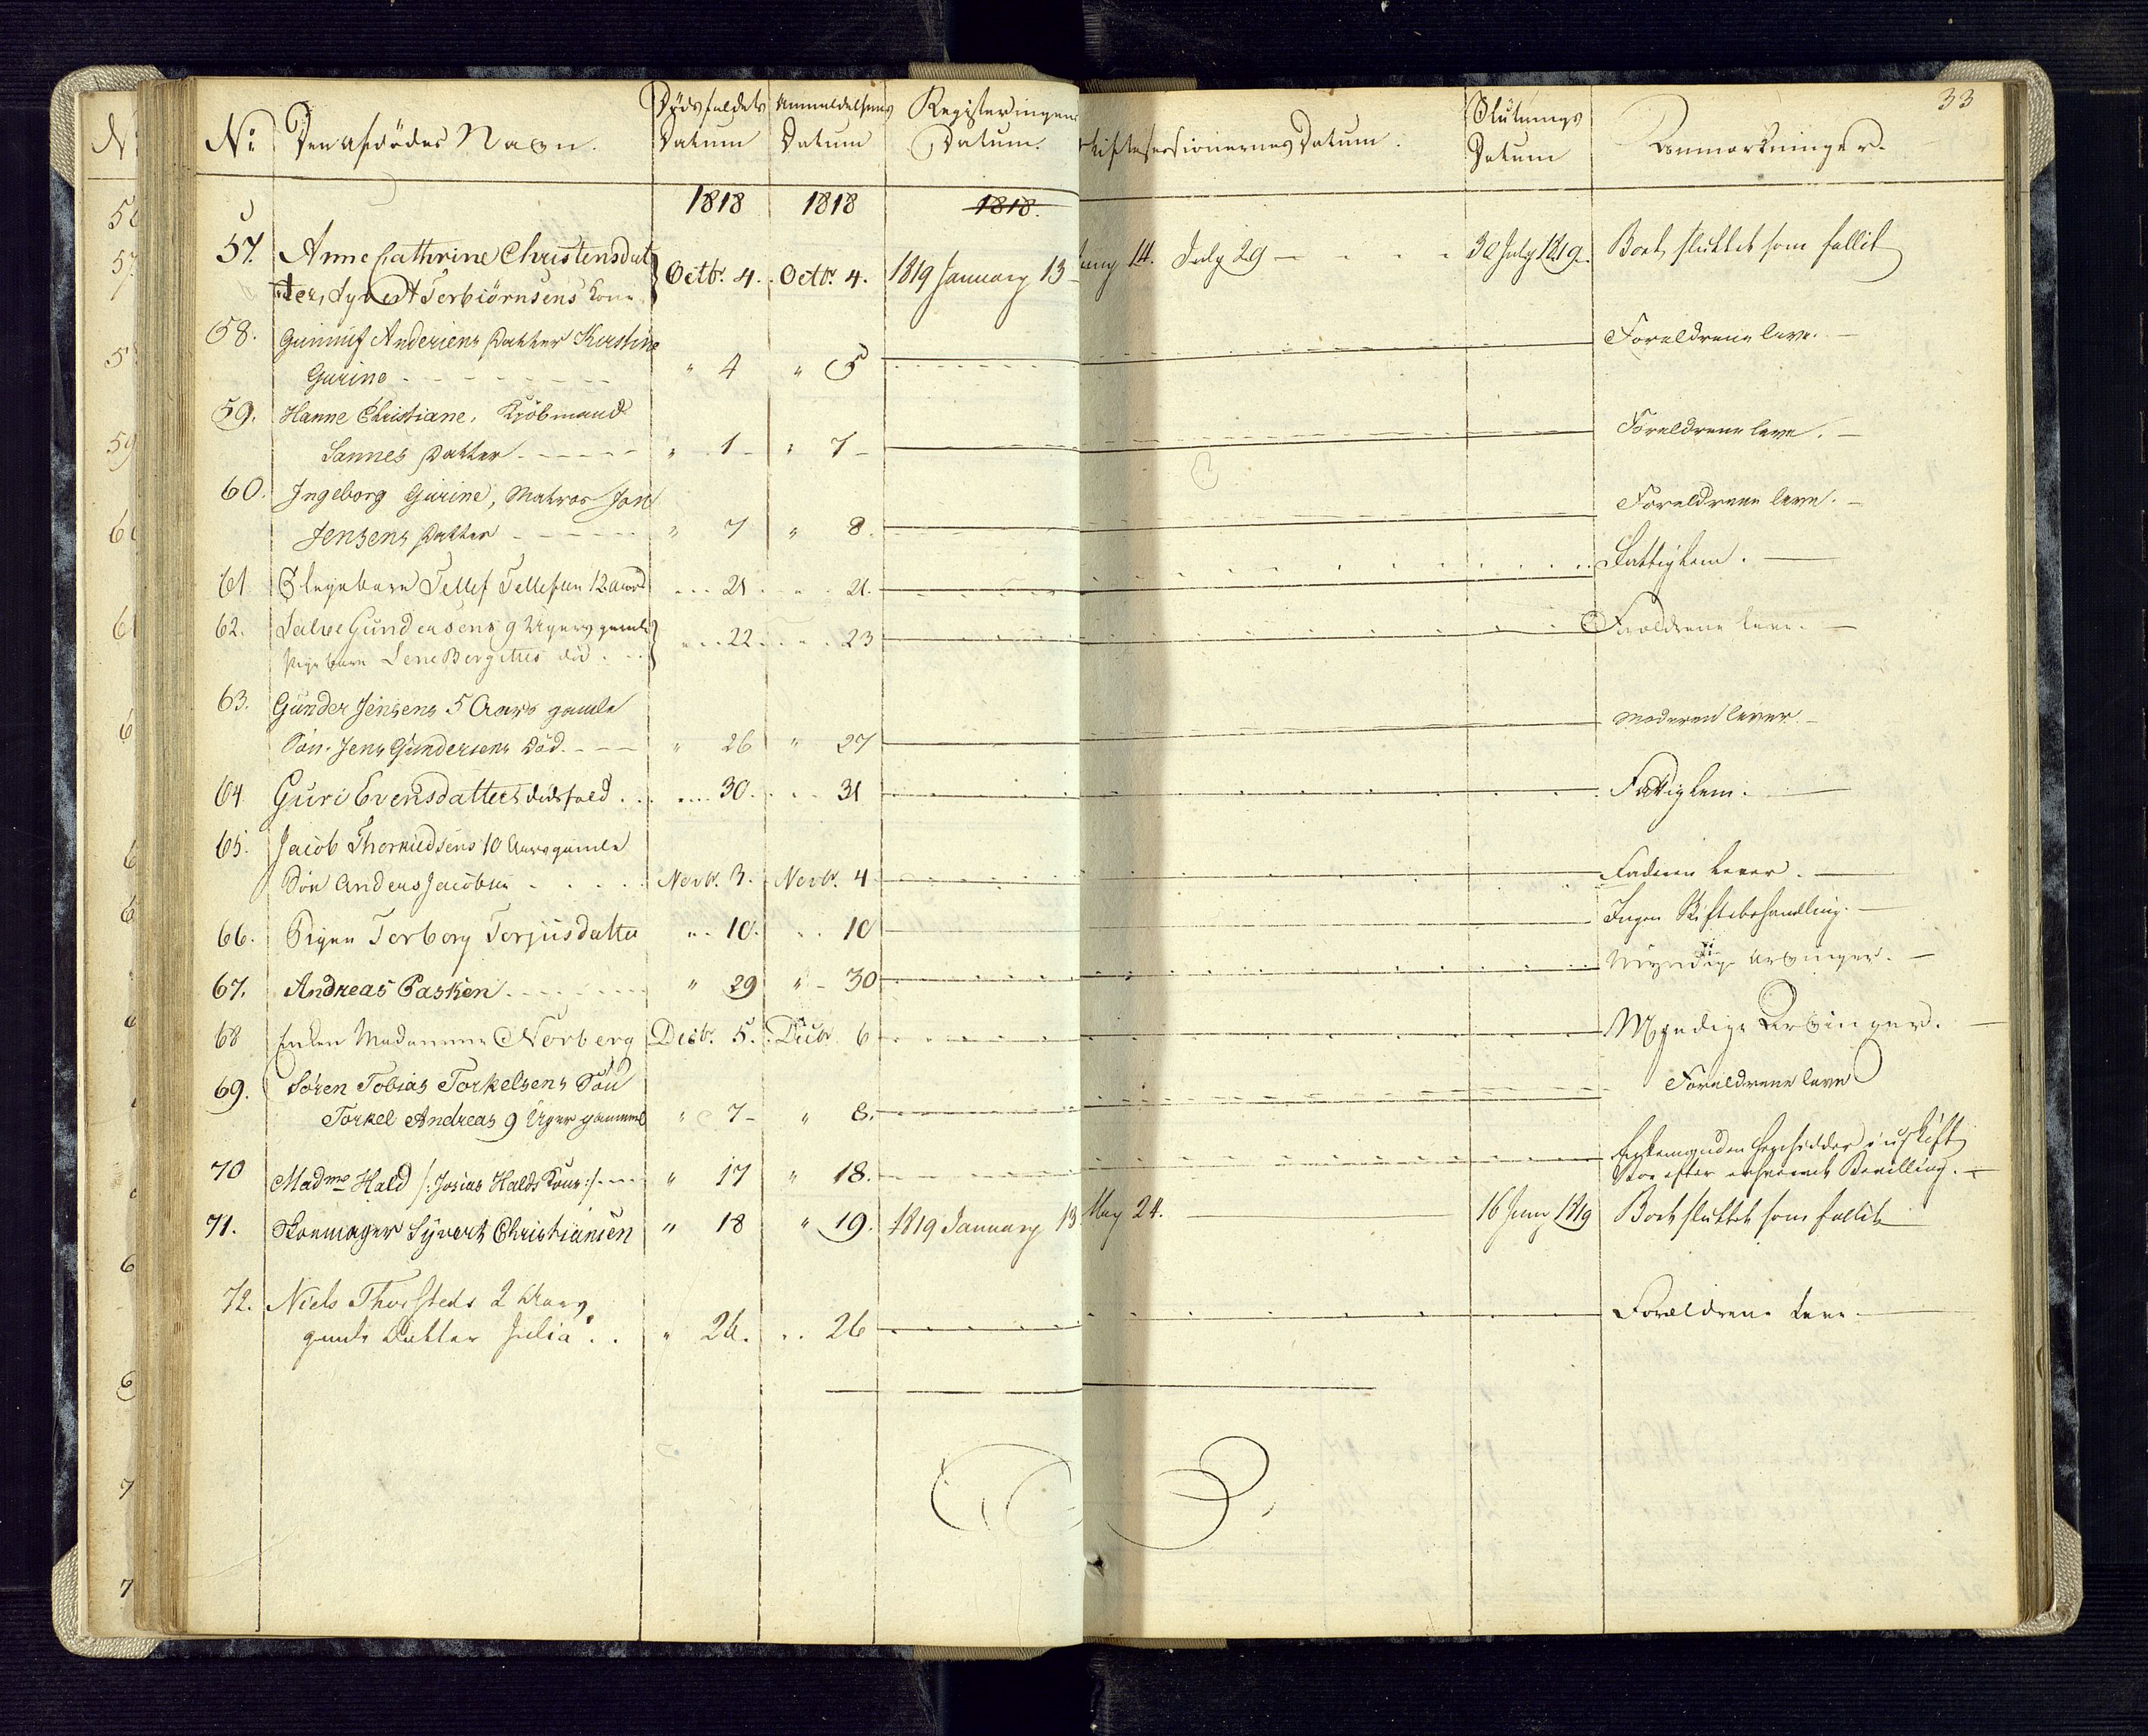 33
No Den afdödes Navn. Dødsfaldets Datum Anmeldelsens Datum Registeringens Datum. Skiftesessionernes Datum. Slutnings Datum Anmærkninger.
1818 1818 1818.
57. Anne Cathrine Christensdat
ter, Syvert Terbiörnsens Kone Octbr. 4. Octbr. 4. 1819 January 13 14. July 29 30 July 1819. Boet sluttet som fallit
58. Gunnuf Andersens Datter Kirstine
Gurine " 4 " 5 Forældrene leve.
59. Hanne Christiane, Kjöbmand
Sannes Datter " 1 " 7 Forældrene leve.
60. Ingeborg Gurine, Matros Jon
Jensens Datter " 7 " 8. Forældrene leve.
61 Tellef Tellefsen 12 21 21. Fattiglem.
62. Salve Gundersens 9 Ugers gamle
Pigebarn Lene Bergittes död 22 23 Forældrene leve.
63. Gunder Jensens 5 Aars gamle
Sön Jens Gundersens Död " 26 " 27 Moderen lever
64 Guri Evensdatters dödsfald 30. 31 Fattiglem.
65. Jacob Thorkildsens 10 Aars gamle
Sön Anders Jacobsen Novbr. 3. Novbr. 4 Faderen lever.
66. Pigen Torborg Torjusdatter " 10. 10 Ingen Skiftebehandling.
67. Andreas Pasken " 29 " 30 Myndige Arvinger.
68 Enken Madamme Norberg Decbr. 5. Decbr. 6 Myndige Arvinger.
69. Sören Tobias Torkelsens Sön
Torkel Andreas 9 Uger gammel " 7 " 8. Forældrene leve
70 Madme Hald /: Josias Halds Kone :/ " 17 " 18. Enkemanden hensidder i uskiftet
Boe efter erhvervet Bevilling.
71. Skomager Syvert Christiansen " 18 " 19. 1819 January 13 May 24. 16 Juny 1819 Boet sluttet som fallit
72. Niels Thorsteds 2 Aars
gamle Datter Julia " 26. 26 Forældrene leve